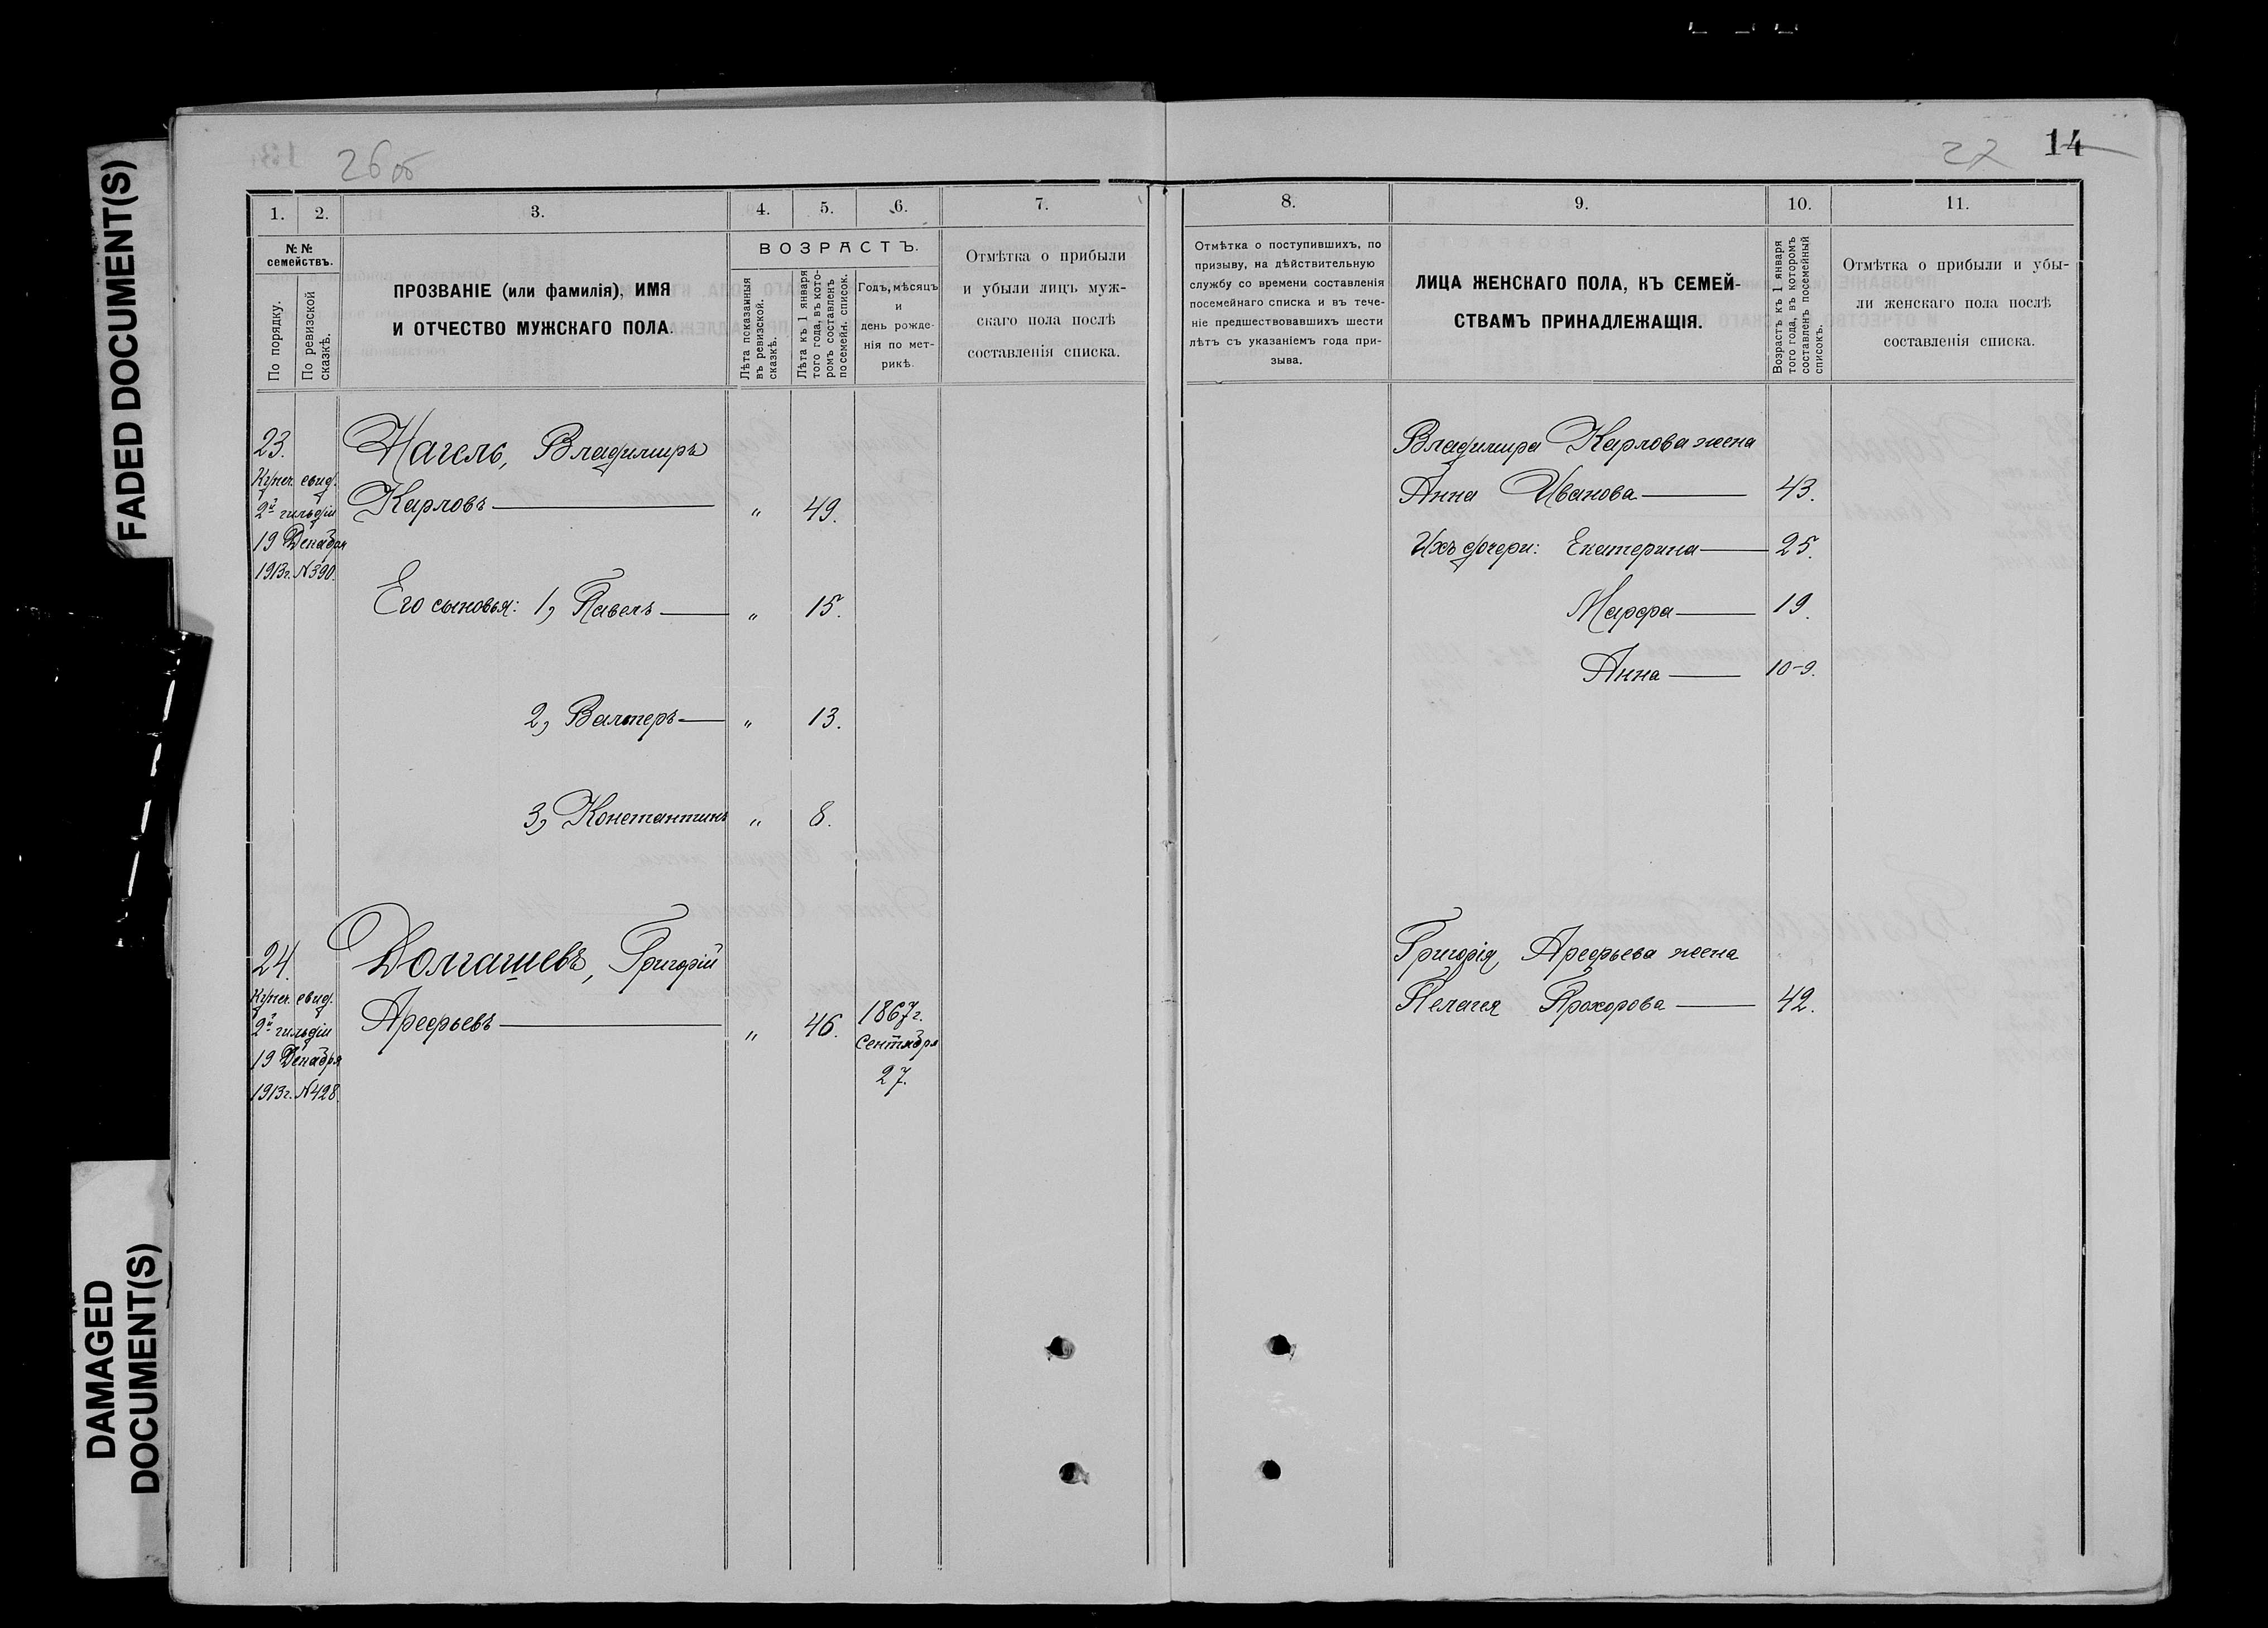 FADED DOCUMENT(S)
DAMAGED
DOCUMENT(S)
26 об
1. 2. 3. 4. 5. 6. 7.
№ №
семействъ.
По порядку.
По ревизской
сказкѣ.
ПРОЗВАНІЕ (или фамилія), ИМЯ
И ОТЧЕСТВО МУЖСКАГО ПОЛА.
ВОЗРАСТЪ.
Лѣта показанныя
въ ревизской.
сказкѣ.
Лѣта къ 1 января
того года, въ кото-
ромъ составленъ
посемейн. список.
Годъ, мѣсяцъ
и
день рожде-
нія по мет-
рикѣ.
Отмѣтка о прибыли
и убыли лицъ муж-
скаго пола послѣ
составленія списка.
23. Нагель, Владимиръ
Купеч. свид.
2й гильдіи Карловъ " 49.
19 Декабря
1913г. N390.
Его сыновья: 1, Павелъ " 15.
2, Валтеръ " 13.
3, Константинъ " 8.
24. Долгашевъ, Григорій
Купеч. свид.
2й гильдіи Арефьевъ " 46. 1867г.
19 Декабря Сентября
1913г. N428. 27.
27 14
8. 9. 10. 11.
Отмѣтка о поступившихъ, по
призыву, на дѣйствительную
службу со времени составленія
посемейнаго списка и въ тече-
ніе предшествовавшихъ шести
лѣтъ съ указаніемъ года при-
зыва.
ЛИЦА ЖЕНСКАГО ПОЛА, КЪ СЕМЕЙ-
СТВАМЪ ПРИНАДЛЕЖАЩІЯ.
Возрастъ къ 1 января
того года, въ которомъ
составленъ посемейный
списокъ.
Отмѣтка о прибыли и убы-
ли женскаго пола послѣ
составленія списка.
Владимира Карлова жена
Анна Иванова 43.
Ихъ дочери: Екатерина 25.
Марфа 19.
Анна 10-9.
Григорія Арефьева жена
Пелагея Прохорова 42.